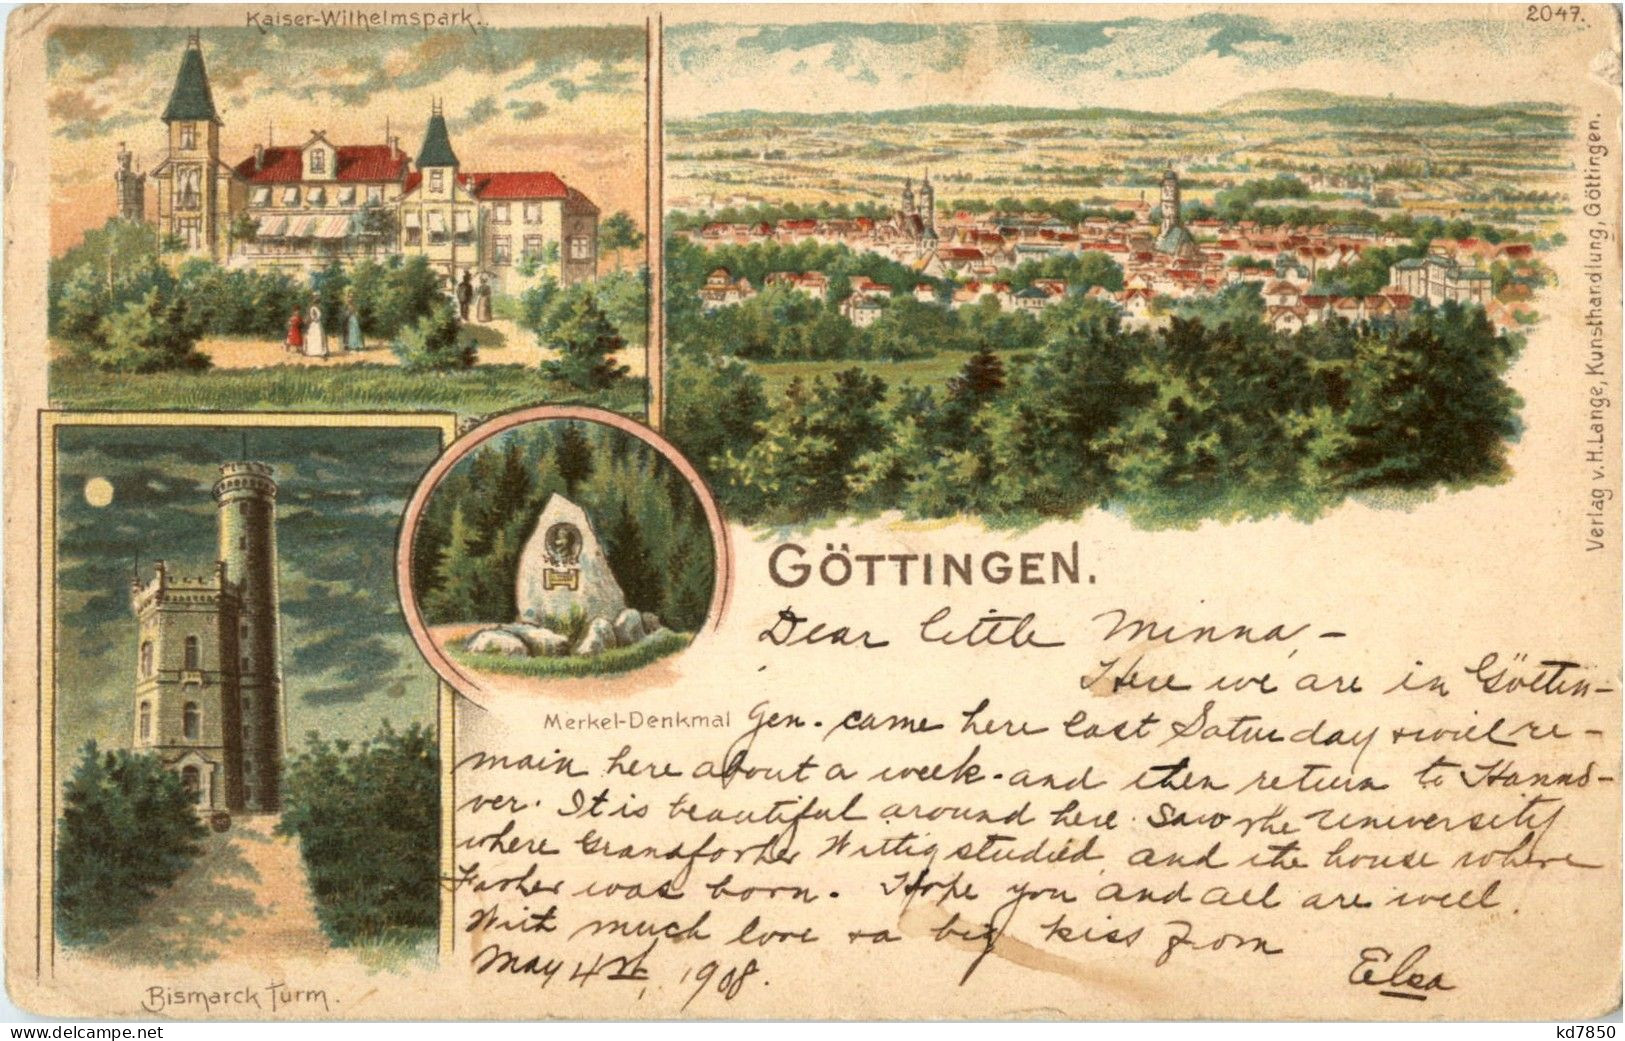 Kaiser-Wilhelmspark.
2047.
Verlag v. H. Lange, Kunsthandlung, Göttingen.
GÖTTINGEN.
Merkel-Denkmal
Bismarck Turm.
Dear little Minna, -
Here we are in Göttin-
gen. came here last Saturday & will re-
main here about a week. and then return to Hanno-
ver. It is beautiful around here. Saw the University
where Grandfather Wittig studied, and the house where
Father was born. Hope you and all are well.
With much love & a big kiss from
Elsa
May 4st, 1908.
www.delcampe.net
kd7850